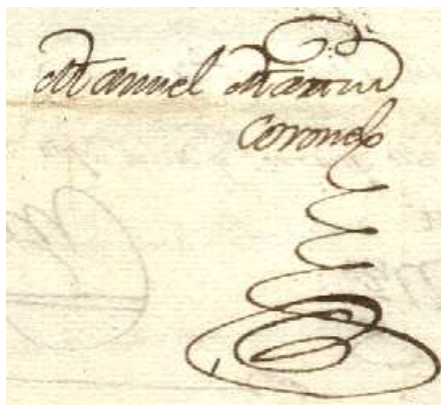 Manuel Martin
Coronel